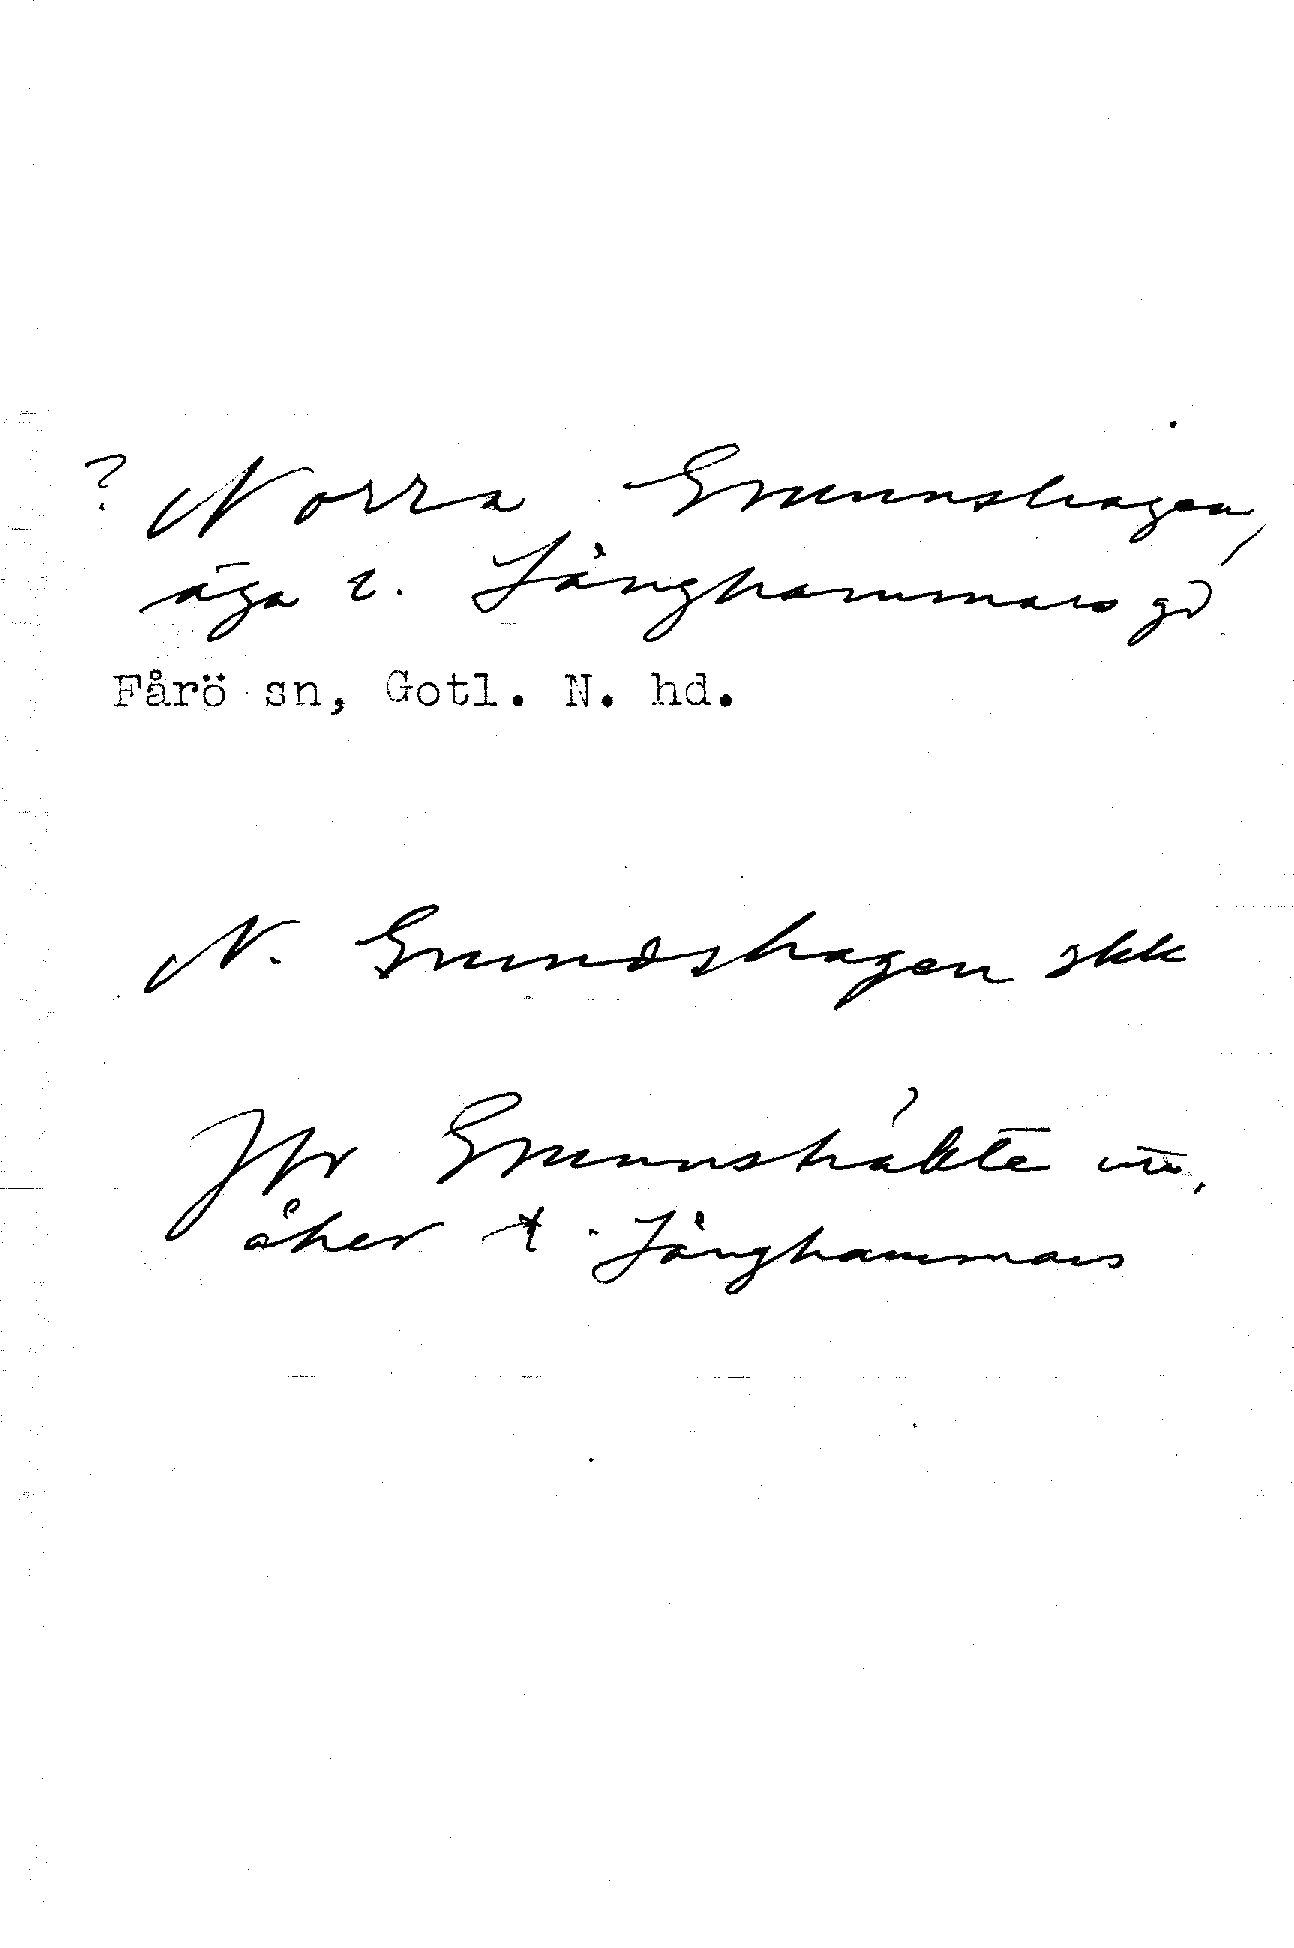 ? Norra Grunnshagen,
äga t. Långhammars gd
Fårö sn, Gotl. N. hd.
N. Grundshagen skk
Jfr Grunnshakte
åker t. Långhammars